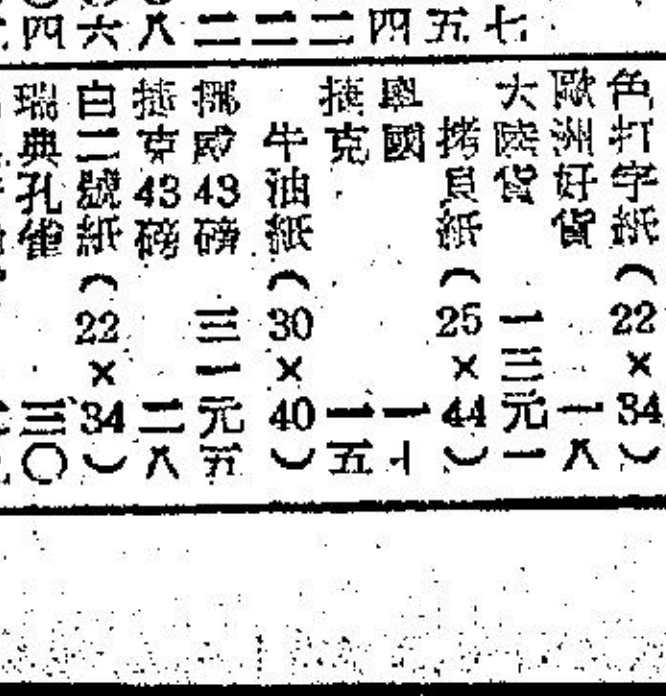 七
五
四
二
二
二
八
六
四
色打字紙（22×34）
歐洲好貨 一八
大陸貨 一三元一
拷貝紙（25×44）
國 一
捷克 一五
牛油紙（30×40）
挪威43磅 三一元五
捷克43磅 二八
白二號紙（22×34）
瑞典孔雀 三〇